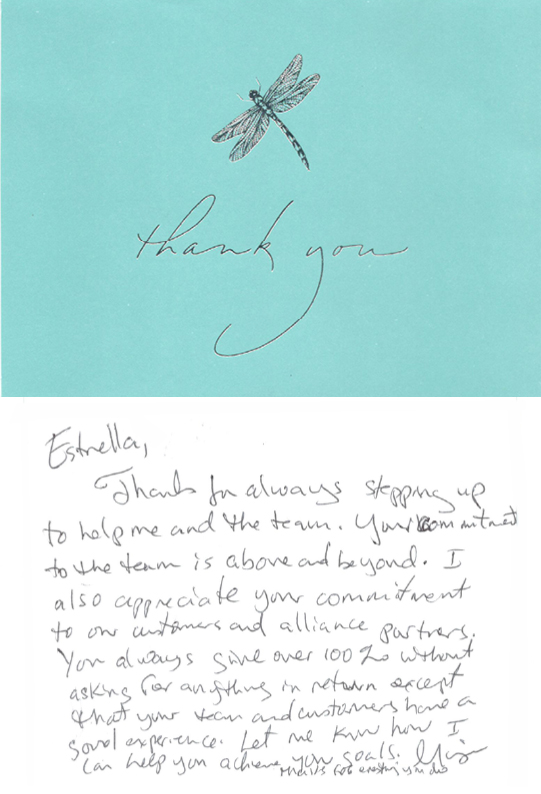 thank you
Estrella,
Thanks for always stepping up
to help me and the team. Your commitment
to the team is above and beyond. I
also appreciate your commitment
to our customers and alliance partners.
You always give over 100% without
asking for anything in return except
that your team and customers have a
good experience. Let me know how I
can help you achieve your goals.
Thanks for everything you do